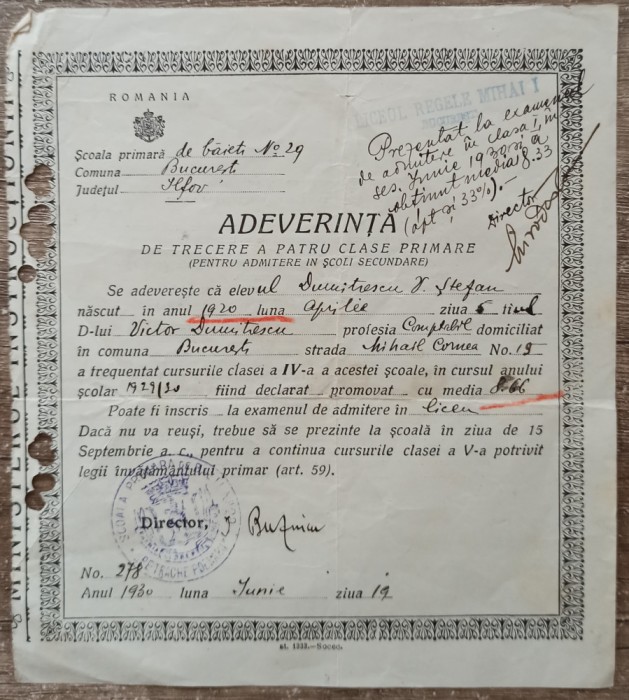 ROMANIA
LICEUL REGELE MIHAI I
Prezentat la examenul
de admitere în clasa I, în
ses. Iunie 1930 și a
obținut media 8.33
(opt și 33%).-
Director
Școala primară de băieți No 29
Comuna București
Județul Ilfov
ADEVERINȚĂ
DE TRECERE A PATRU CLASE PRIMARE
(PENTRU ADMITERE IN ȘCOLI SECUNDARE)
Se adeverește că elevul Dumitrescu V. Ștefan
născut în anul 1920 luna Aprilie ziua 5 fiul
D-lui Victor Dumitrescu profesia Comptabil domiciliat
în comuna București strada Mihail Cornea No. 15
a frequentat cursurile clasei a IV-a a acestei școale, în cursul anului
școlar 1929/30 fiind declarat promovat cu media 8.66
Poate fi inscris la examenul de admitere în liceu
Dacă nu va reuși, trebue să se prezinte la școală în ziua de 15
Septembrie a. c., pentru a continua cursurile clasei a V-a potrivit
legii învățământului primar (art. 59).
Director,
No. 278
Anul 1930 luna Iunie ziua 19
MINISTERUL INSTRUCȚIUNII
st. 1333.—Socec.